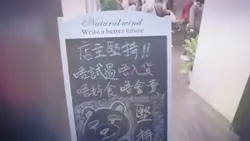 Natural wind
Write a better future
店主堅持!!
唔試過唔入貨
唔好食唔會賣
堅
持